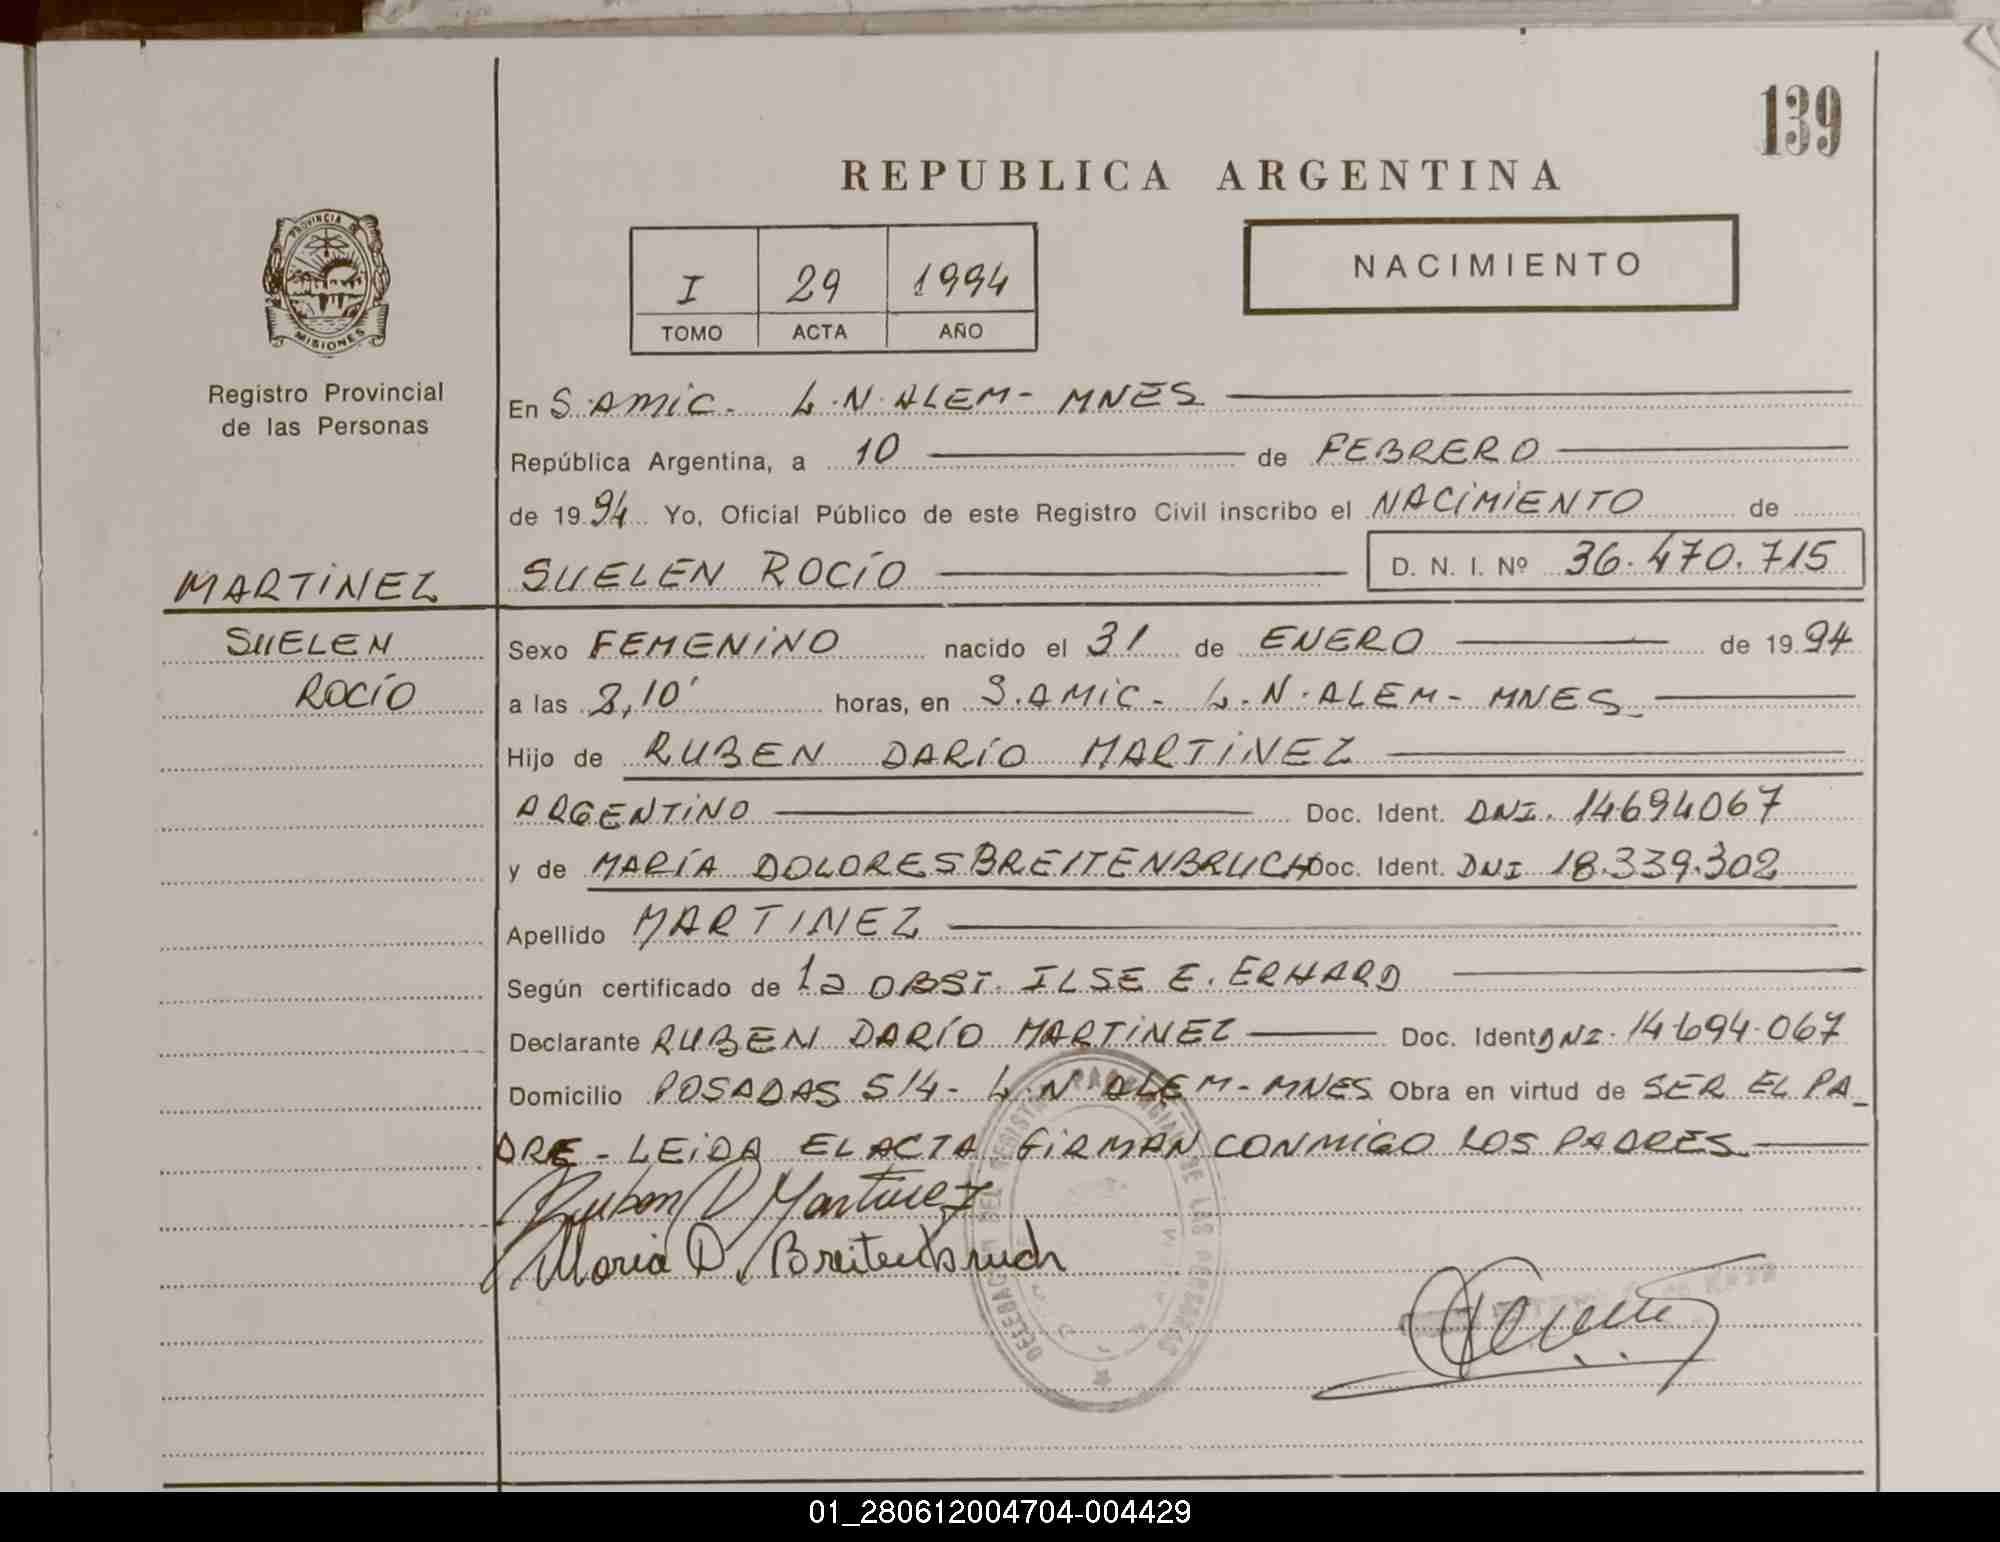 139
REPUBLICA ARGENTINA
PROVINCIA DE
MISIONES
I 29 1994
TOMO ACTA AÑO
NACIMIENTO
Registro Provincial
de las Personas
En S.AMIC. L.N.ALEM- MNES
República Argentina, a 10 de FEBRERO
de 1994 Yo, Oficial Público de este Registro Civil inscribo el NACIMIENTO de
SUELEN ROCÍO D. N. I. Nº 36.470.715
MARTINEZ
SUELEN
ROCÍO
Sexo FEMENINO nacido el 31 de ENERO de 1994
a las 8,10' horas, en S.AMIC- L.N.ALEM- MNES
Hijo de RUBEN DARÍO MARTINEZ
ARGENTINO Doc. Ident. DNI. 14694067
y de MARÍA DOLORES BREITENBRUCH Doc. Ident. DNI 18.339.302
Apellido MARTINEZ
Según certificado de la OBST. ILSE E. ERHARD
Declarante RUBEN DARÍO MARTINEZ Doc. Ident DNI. 14.694.067
Domicilio POSADAS 514- L.N ALEM- MNES Obra en virtud de SER EL PA_
DRE - LEIDA EL ACTA FIRMAN CONMIGO LOS PADRES
Ruben D Martinez
Maria D. Breitenbruch
DELEGACION DEL REGISTRO PROVINCIAL DE LAS PERSONAS
01_280612004704-004429